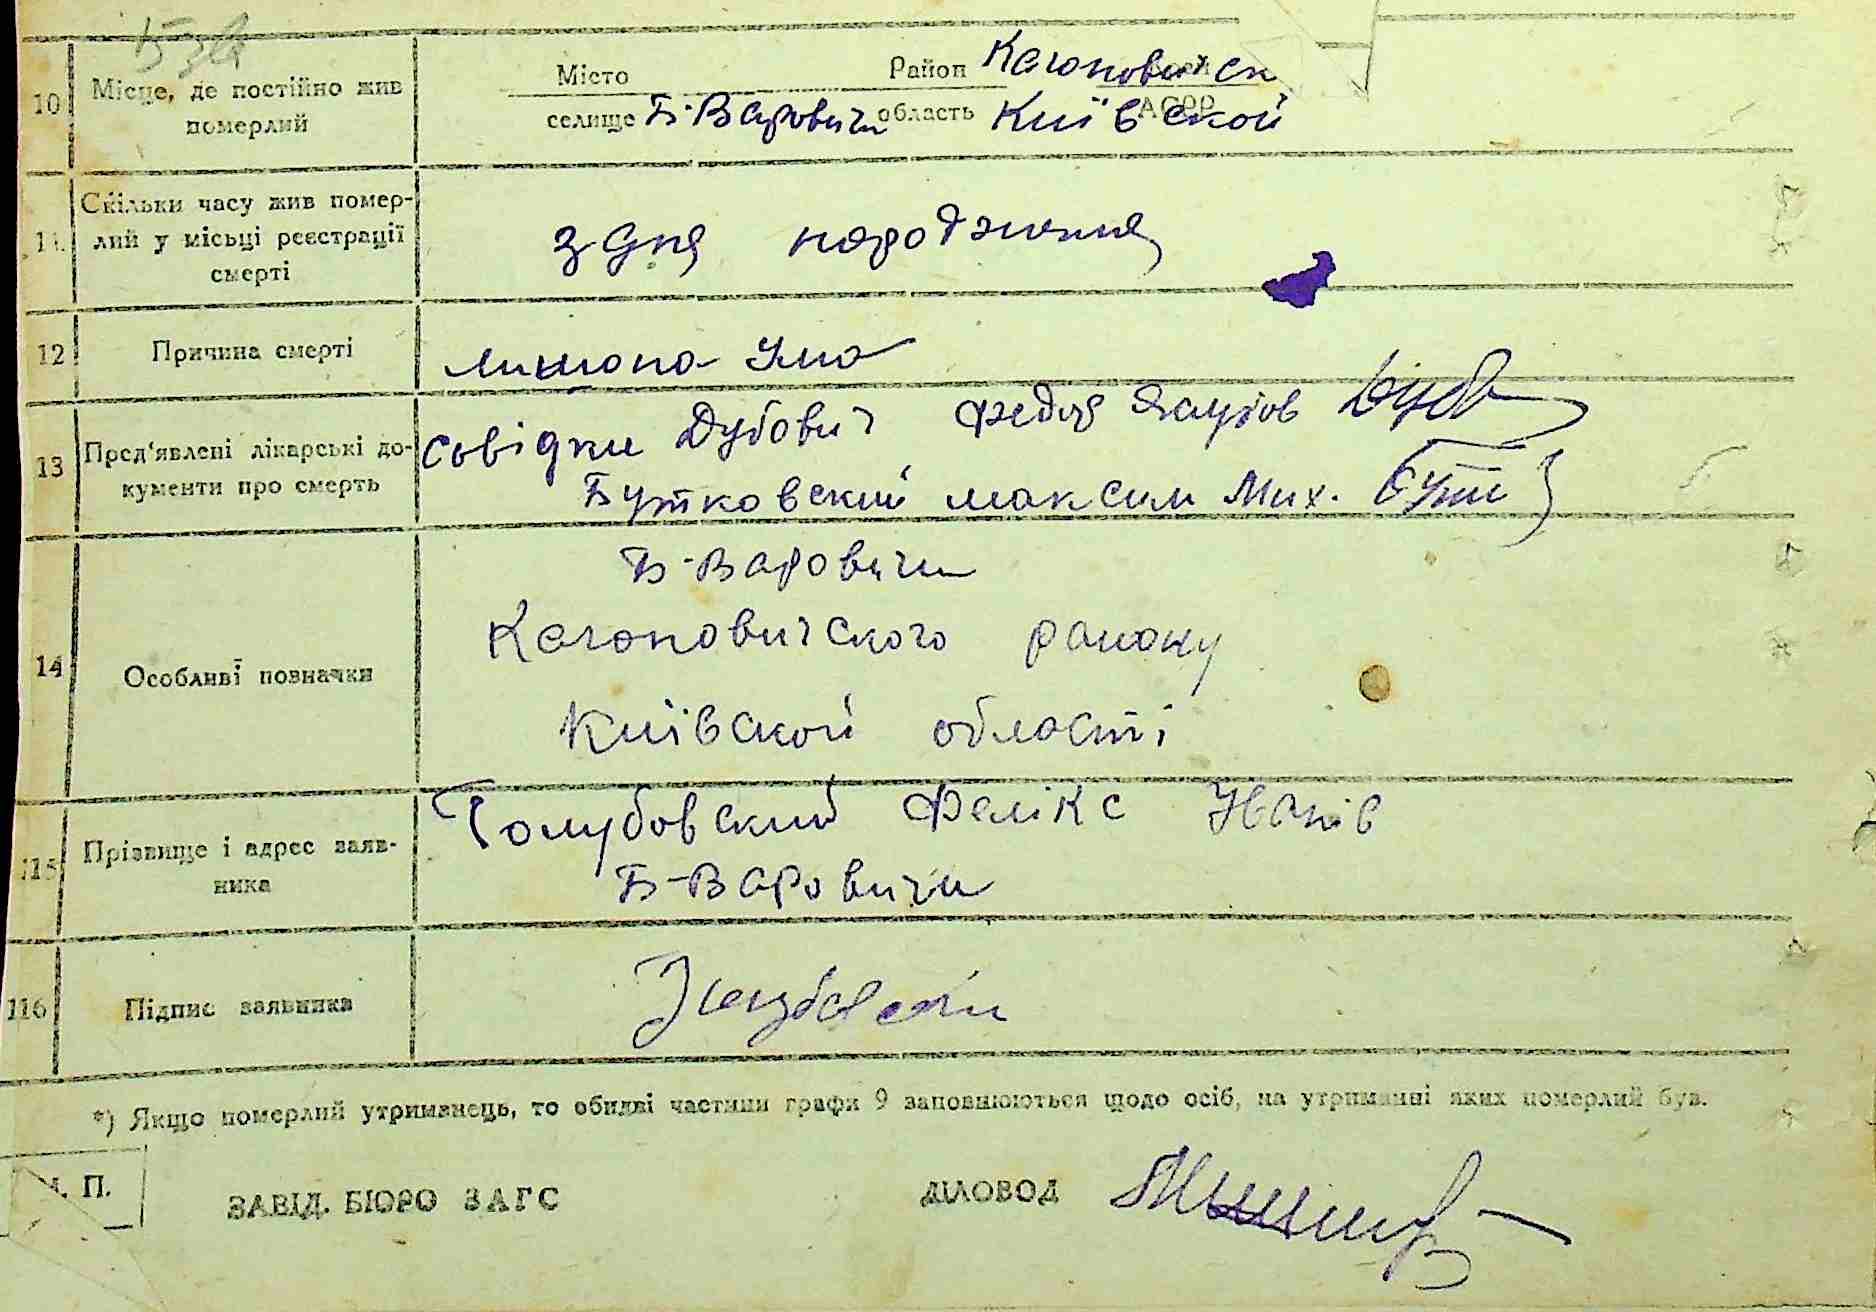 10 Місце, де постійно жив померлий
Місто Район Кагонович ск
селище Б-Варовичи область Київской АСРР
11. Скільки часу жив помер-
лий у місьці реєстрації
смерті
з дня народження
12 Причина смерті
лишона ума
13 Пред'явлені лікарські до-
кументи про смерть
Совідки Дубович Федор Дуб
Бутковский максим Мих. Бутк
14 Особливі позначки
Б-Варовичи
Кагоновичского району
Київской області
15 Прізвище і адрес заяв-
ника
Голубовский Фелікс Иванів
Б-Варовичи
16 Підпис заявника
*) Якщо померлий утриманець, то обидві частини графи 9 заповнюються щодо осіб, на утриманні яких померлий був.
М. П.
ЗАВІД. БЮРО ЗАГС ДІЛОВОД